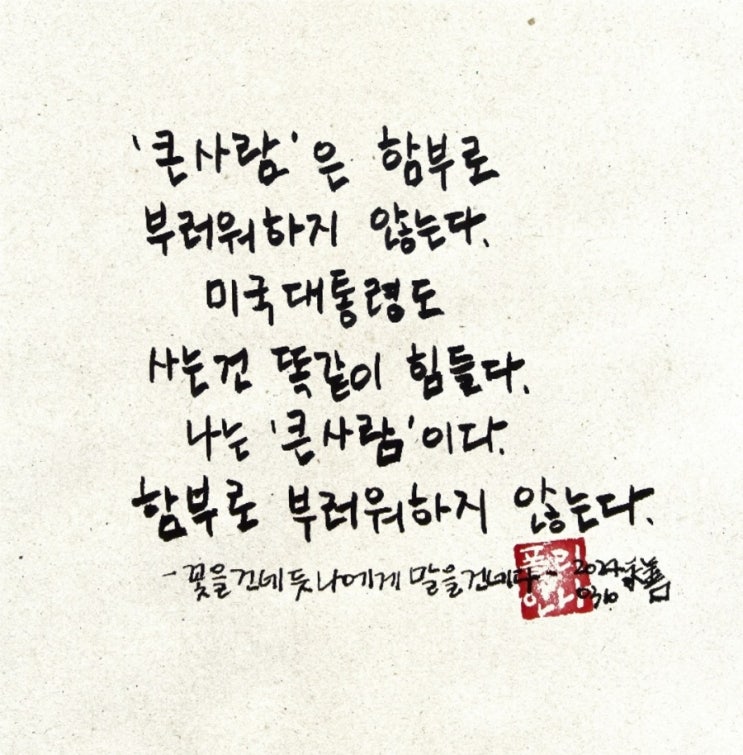 '큰사람'은 함부로
부러워하지 않는다.
미국대통령도
사는건 똑같이 힘들다.
나는 '큰사람'이다.
함부로 부러워하지 않는다.
- 꽃을건네듯나에게 말을건네다 - 2024
0310